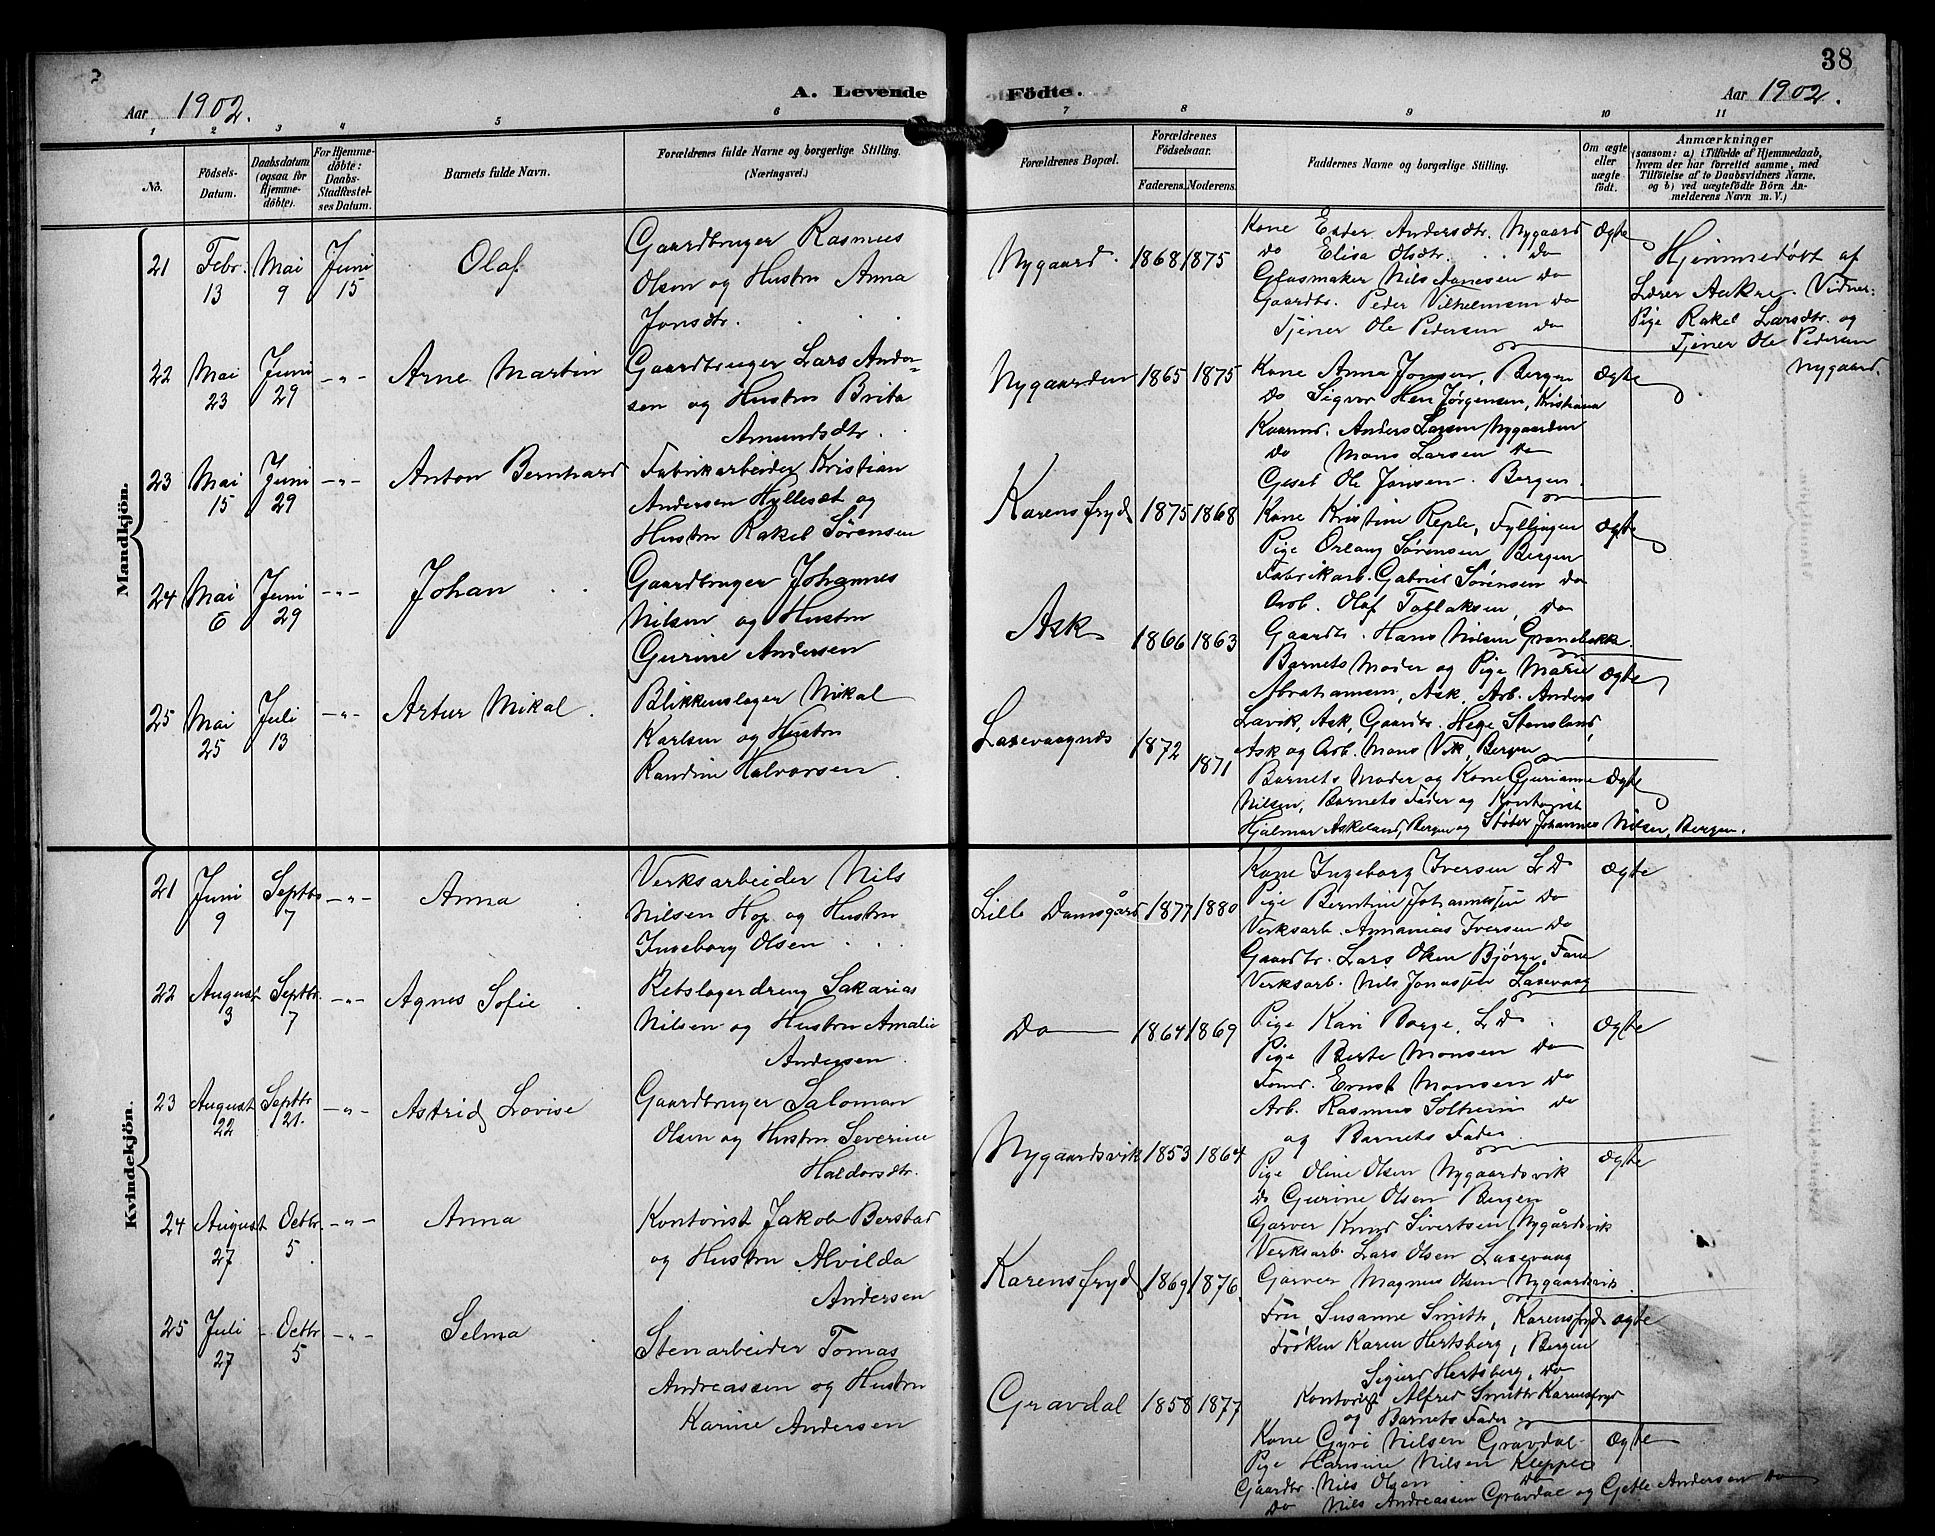 38
Aar 1902. A. Levende Födte. Aar 1902.
1 2 3 4 5 6 7 8 9 10 11
No.
Födsels-
Datum.
Daabsdatum
(ogsaa for
Hjemme-
döbte).
For Hjemme-
döbte:
Daabs-
Stadfæstel-
ses Datum.
Barnets fulde Navn.
Forældrenes fulde Navne og borgerlige Stilling.
(Næringsvei.)
Forældrenes Bopæl.
Forældrenes
Födselsaar.
Faderens. Moderens.
Faddernes Navne og borgerlige Stilling.
Om ægte
eller
uægte
födt.
Anmærkninger
(saasom: a) i Tilfælde af Hjemmedaab,
hvem der har forrettet samme, med
Tilföielse af to Daabsvidners Navne,
og b) ved uægtefödte Börn An-
melderens Navn m. V.)
Mandkjön.
21 Febr. 13 Mai 9 Juni 15 Olaf
Gaardbruger Rasmus
Olsen og Hustru Anna
Jonsdtr.
Nygaard. 1868 1875
Kone Ester Andersdtr. Nygaard
do Elisa Olsdtr. do
Glasmaker Nils do
Gaardbr. Peder Vilhelmsen do
Tjener Ole Pedersen do
Ægte
Hjemmedøbt af
Lærer Aakre. Vidner:
Pige Rakel Larsdtr. og
Tjener Ole Pedersen
Nygaard.
22 Mai 23 Juni 29 -"- Arne Martin
Gaardbruger Lars Ander-
sen og Hustru Brita
Amundsdtr.
Nygaarden 1865 1875
Kone Anna Jonsen, Bergen
do Sigvor Jørgensen, Kristiania
Kaarmd. Anders Larsen Nygaarden
do Mons Larsen do
Gesel Ole Jonsen. Bergen.
Ægte
23 Mai 15 Juni 29 -"- Anton Bernhard
Fabrikarbeider Kristian
Andersen Hyllesæt og
Hustru Rakel Sørensen
Karensfryd 1875 1868
Kone Kristine Reple, Fyllingen
Pige Orlaug Sørensen, Bergen
Fabrikarb. Gabriel Sørensen do
Arb. Olaf Tollaksen, do
Gaardbr. Hans Nilsen Grønebakke
Ægte
24 Mai 6 Juni 29 -"- Johan
Gaardbruger Johannes
Nilsen og Hustru
Gurine Andersen
Ask 1866 1863
Barnets Moder og Pige Marie
Abrahamsen, Ask, Arb. Anders
Lavik, Ask, Gaardbr. Hege Stensland,
Ask og Arb. Mons Vik, Bergen
Ægte
25 Mai 25 Juli 13 -"- Artur Mikal
Blikkenslager Mikal
Karlsen og Hustru
Randine Halvorsen
Laxevaagnes 1872 1871
Barnets Moder og Kone Gurianne
Nilsen, Barnets Fader og Kontorist
Hjalmar Askeland, Bergen og Støber Johannes Nilsen, Bergen.
Ægte
Kvindekjön.
21 Juni 9 Septbr 7 -"- Anna
Verksarbeider Nils
Nilsen Hop og Hustru
Ingeborg Olsen
Lille Damsgård 1877 1880
Kone Ingeborg Iversen L D
Pige Berntine Johannessen do
Verksarb. Annanias Iversen do
Gaardbr. Lars Olsen Bjørge, Fane
Verksarb. Nils Jonassen Laxevaag
Ægte
22 August 3 Septbr. 7 -"- Agnes Sofie
Rebslagerdreng Sakarias
Nilsen og Hustru Amalie
Andersen.
Do 1864 1869
Pige Kari Borge, L D
Pige Berte Monsen do
Formd. Ernst Monsen do
Arb. Rasmus Solheim do
og Barnets Fader.
Ægte
23 August 22 Septbr 21. -"- Astrid Lovise
Gaardbruger Saloman
Olsen og Hustru Severine
Haldorsdtr.
Nygaardsvik 1853 1864
Pige Oline Olsen Nygaardsvik
do Gurine Olsen Bergen
Garver Knud Sivertsen Nygårdsvik
Verksarb. Lars Olsen Laxevaag
Garver Magnus Olsen Nygaardsvik.
Ægte
24 August 27 Octbr. 5 -"- Anna
Kontorist Jakob Berstad
og Hustru Alvilda
Andersen
Karensfryd 1869 1876.
Fru Susanne Smitt, Karensfryd
Frøken Karen Hertsberg, Bergen
Sigurd Hertsberg, do
Kontorist Alfred Smitt Karensfryd
og Barnets Fader
ægte
25 Juli 27 Octbr 5 -"- Selma
Stenarbeider Tomas
Andreassen og Hustru
Karine Andersen
Gravdal 1858 1877
Kone Gyri Nilsen Gravdal
Pige Hansine Nilsen Kleppe
Gaardbr. Nils Olsen do
Do Nils Andreassen Gravdal og Andersen Do
Ægte